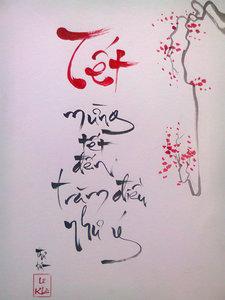 Tết
mừng
tết
đến
trăm điều
như ý
Lê
Khôi